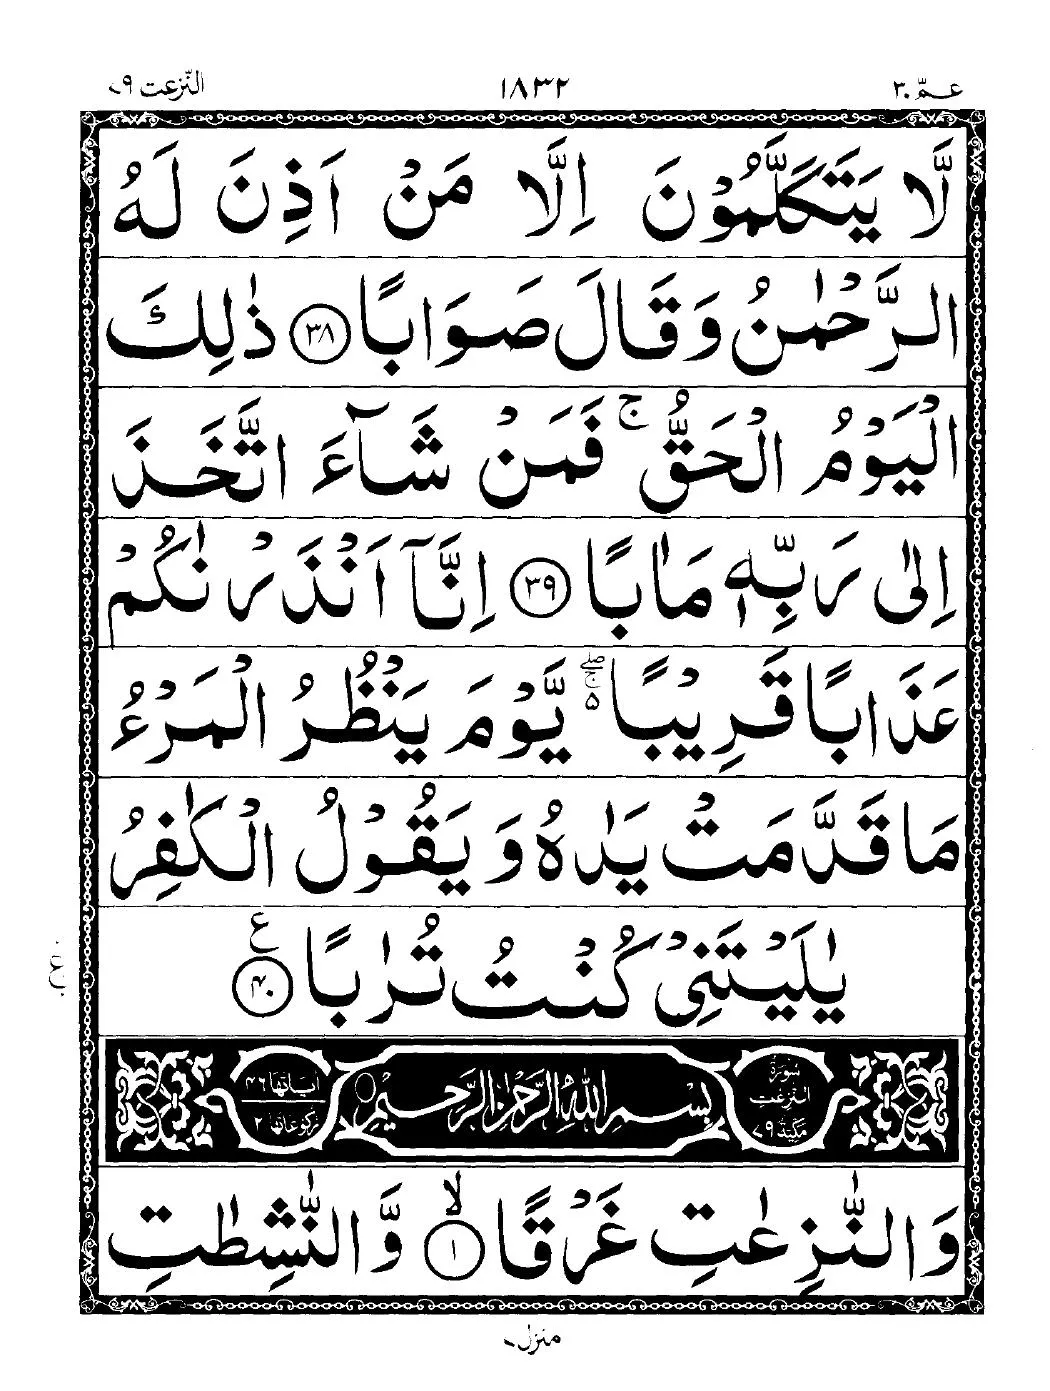 عـمّ ٣٠ ١٨٣٢ النّٰزعٰت ٧٩
لَّا يَتَكَلَّمُوْنَ اِلَّا مَنْ اَذِنَ لَهُ
الرَّحْمٰنُ وَقَالَ صَوَابًا ﴿٣٨﴾ ذٰلِكَ
الْيَوْمُ الْحَقُّ ۚ فَمَنْ شَآءَ اتَّخَذَ
اِلٰى رَبِّهٖ مَاٰبًا ﴿٣٩﴾ اِنَّآ اَنْذَرْنٰكُمْ
عَذَابًا قَرِيْبًا ۖۚ۵ يَّوْمَ يَنْظُرُ الْمَرْءُ
مَا قَدَّمَتْ يَدٰهُ وَيَقُوْلُ الْكٰفِرُ
يٰلَيْتَنِيْ كُنْتُ تُرٰبًا ﴿٤٠﴾ ع
سُوْرَةُ النّٰزِعٰتِ مَكِّيَّةٌ ٧٩ بِسْمِ اللّٰهِ الرَّحْمٰنِ الرَّحِيْمِ اٰيَاتُهَا ٤٦ رُكُوْعَاتُهَا ٢
وَالنّٰزِعٰتِ غَرْقًا ﴿١﴾ ۙ وَّالنّٰشِطٰتِ
منزل ٧